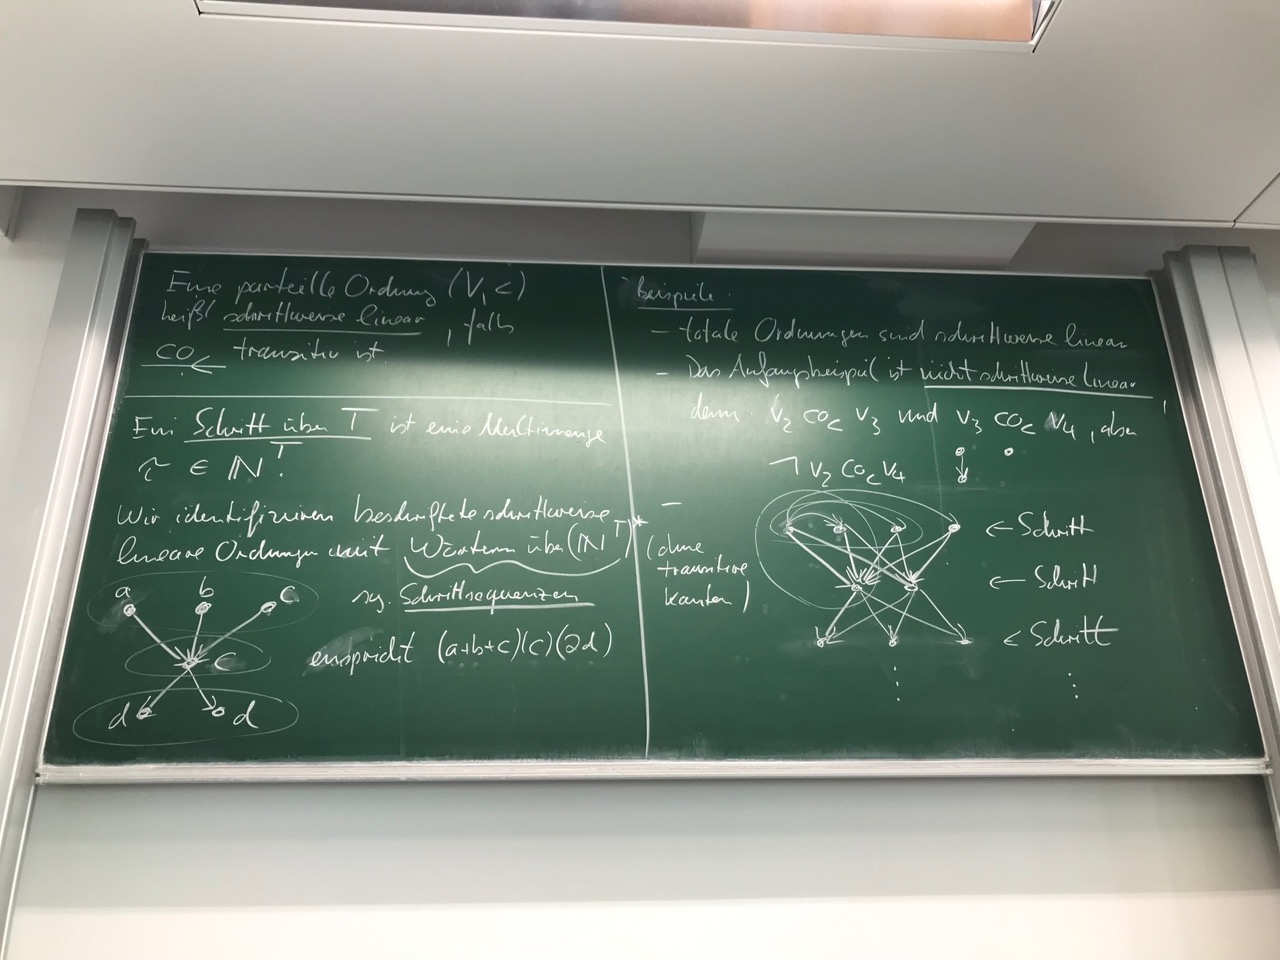 Eine partielle Ordnung (V, <)
heißt schrittweise linear, falls
co< transitiv ist
Ein Schritt über T ist eine Multimenge
τ ∈ ℕ^T.
Wir identifizieren beschriftete schrittweise
lineare Ordnungen mit Wörtern über (ℕ^T)*
sg. Schrittsequenzen
a b c
c
d d
entspricht (a+b+c)(c)(2d)
Beispiele.
- totale Ordnungen sind schrittweise linear
- Das Anfangsbeispiel ist nicht schrittweise linear,
denn v₂ co< v₃ und v₃ co< v₄, aber
¬ v₂ co< v₄
-
(ohne
transitive
Kanten)
← Schritt
← Schritt
← Schritt
⋮ ⋮